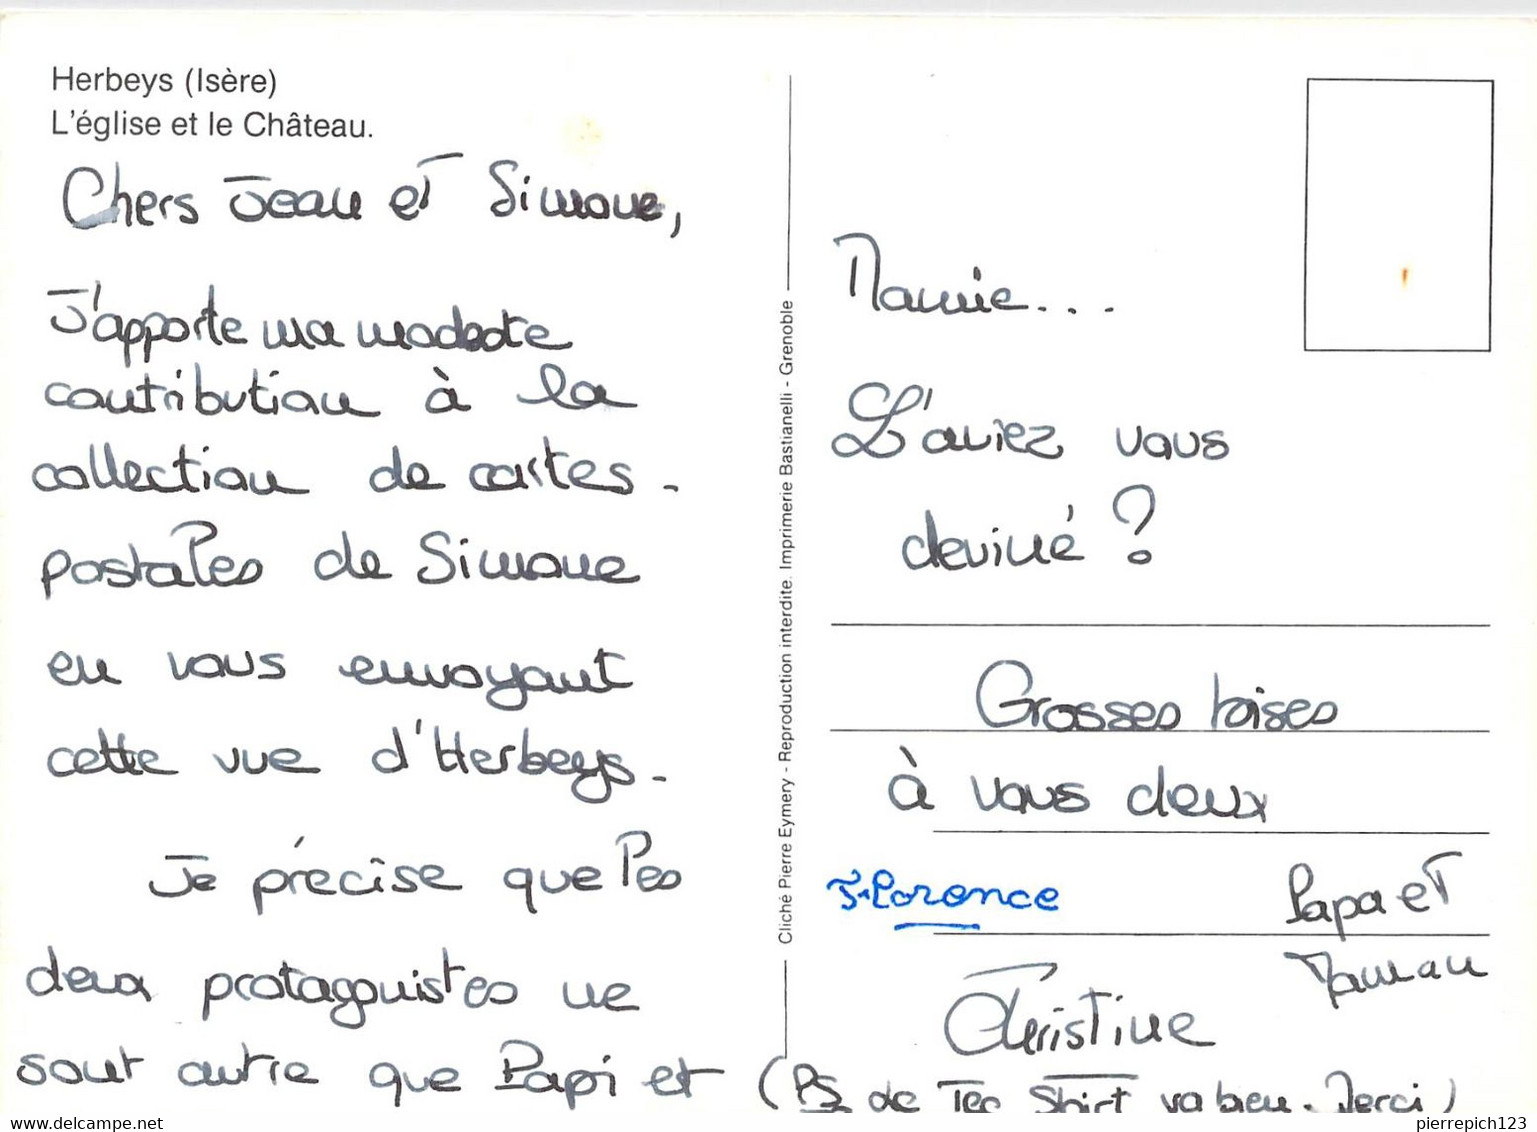 Herbeys (Isère)
L'église et le Château.
Chers Jean et Simone,
J'apporte ma modeste
contribution à la
collection de cartes -
postales de Simone
en vous envoyant
cette vue d'Herbeys.
Je précise que les
deux protagonistes ne
sont autre que Papi et
Mamie...
L'aviez vous
deviné ?
Grosses bises
à vous deux
Florence
Papa et
Maman
Christine
(PS de Tee Shirt va bien. Merci)
Cliché Pierre Eymery - Reproduction interdite. Imprimerie Bastianelli - Grenoble
Delcampe.net
pierrepich123